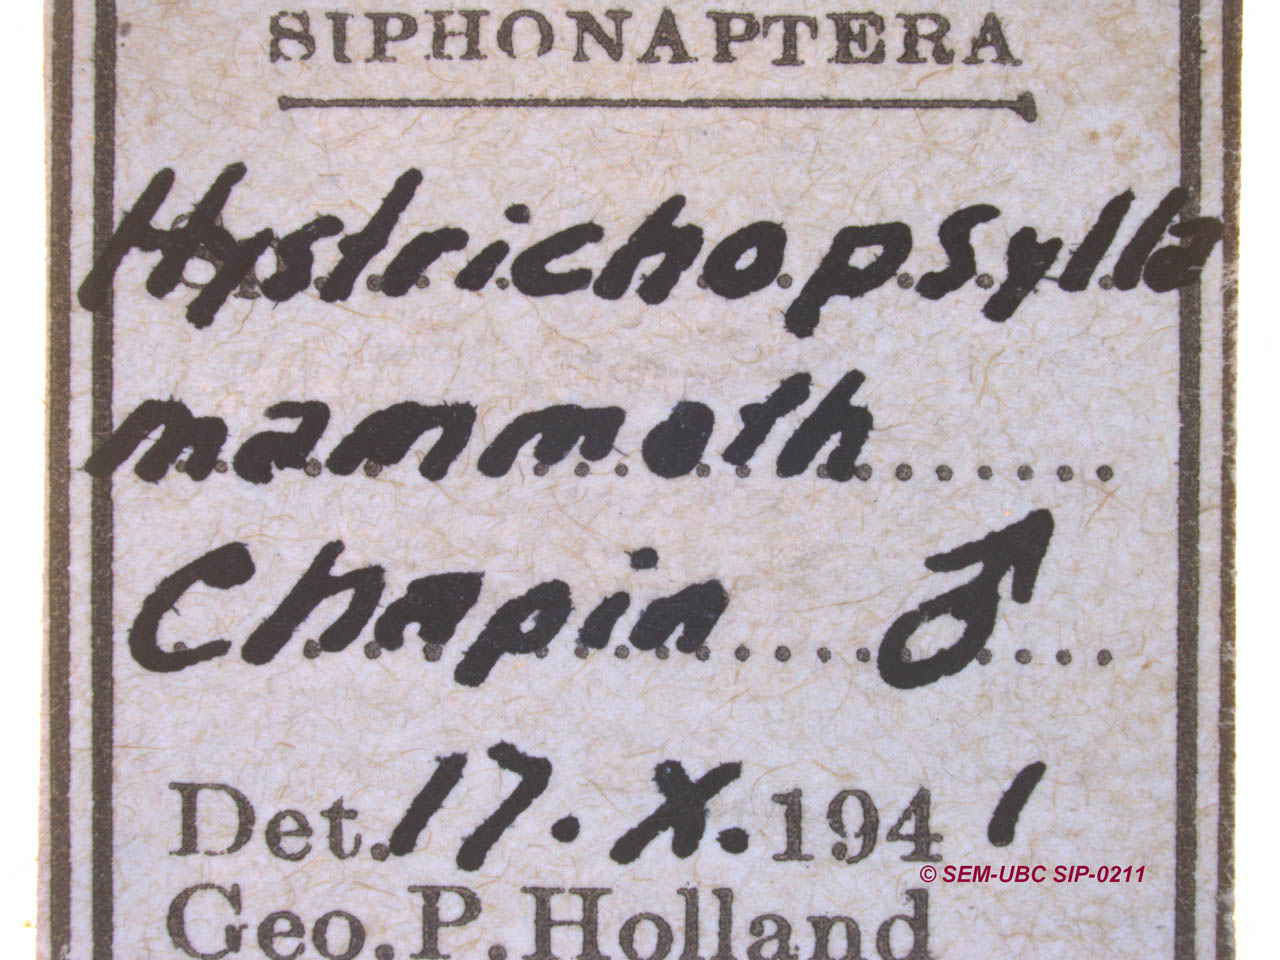 SIPHONAPTERA
Hystrichopsylla
mammoth
Chapin ♂
Det. 17. X. 194 1
© SEM-UBC SIP-0211
Geo. P. Holland